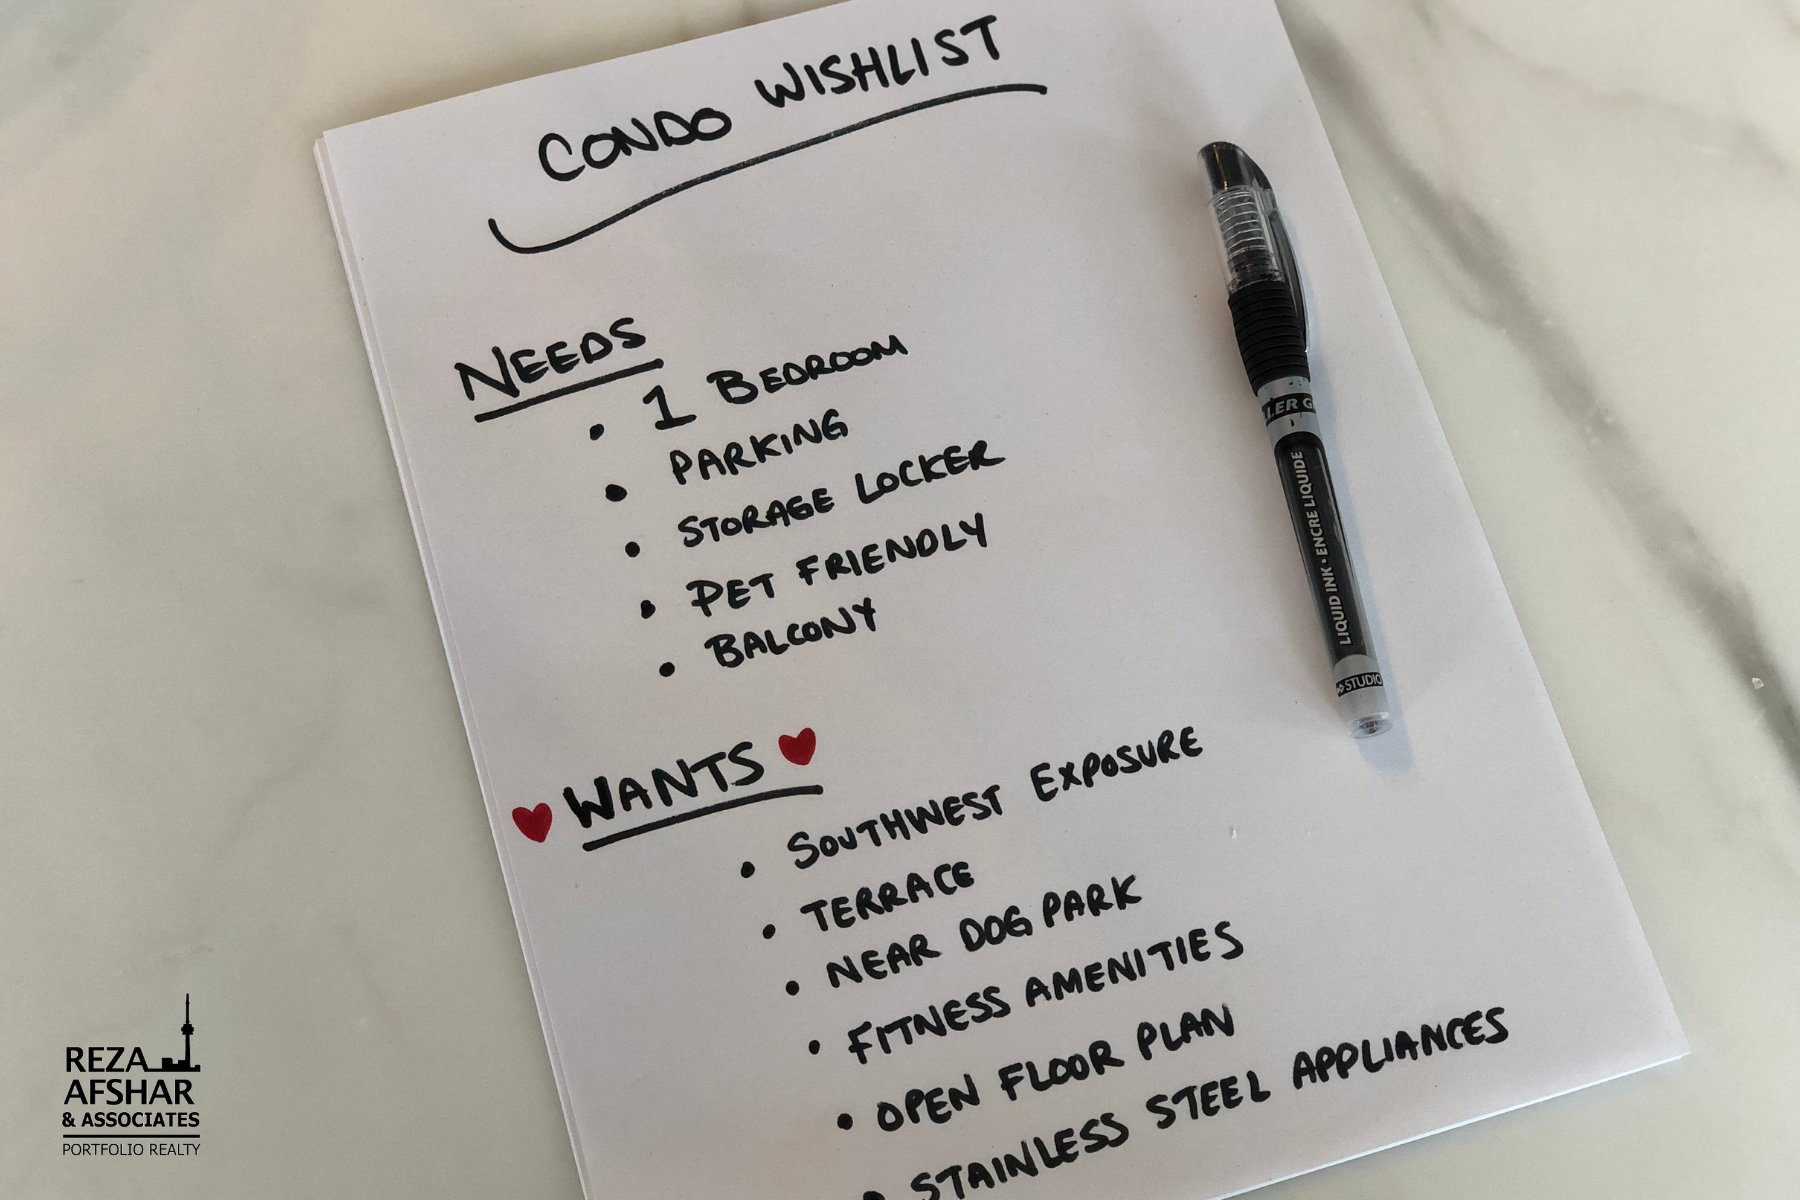 CONDO WISHLIST
NEEDS
• 1 BEDROOM
• PARKING
• STORAGE LOCKER
• PET FRIENDLY
• BALCONY
WANTS
• SOUTHWEST EXPOSURE
• TERRACE
• NEAR DOG PARK
• FITNESS AMENITIES
• OPEN FLOOR PLAN
• STAINLESS STEEL APPLIANCES
LIQUID INK • ENCRE LIQUIDE
STUDIO
REZA
AFSHAR
& ASSOCIATES
PORTFOLIO REALTY